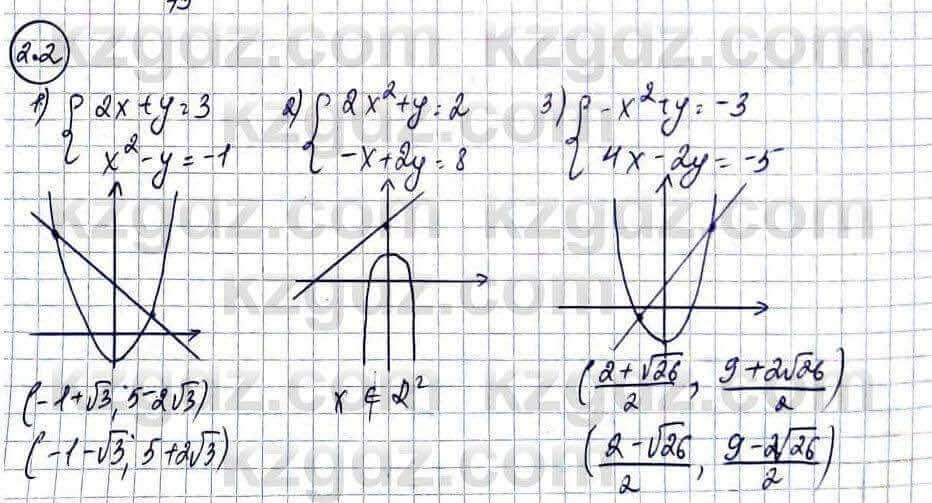 2.2
1) { 2x+y=3 2) { 2x²+y=2 3) { -x²+y=-3
x²-y=-1 -x+2y=8 4x-2y=-5
(-1+√3; 5-2√3)
(-1-√3; 5+2√3)
x ∉ R²
((2+√26)/2, (9+2√26)/2)
((2-√26)/2, (9-2√26)/2)
kzgdz.com kzgdz.com
kzgdz.com
kzgdz.com kzgdz.com
kzgdz.com
kzgdz.com kzgdz.com
kzgdz.com